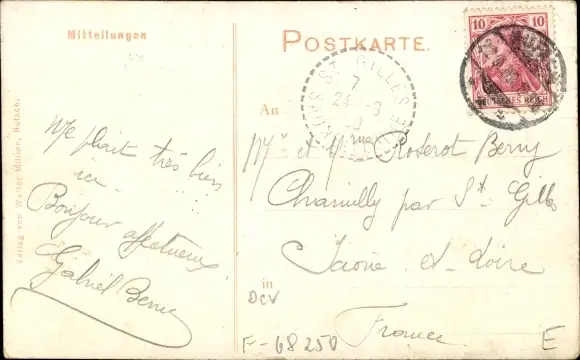 Mitteilungen
POSTKARTE.
10 10
DEUTSCHES REICH
ST GILLES
7
24 - 9
An
Mr et Mme Roserot Berry
Chamilly par St Gilles
Saône-et-Loire
in
France
Me plait très bien
ici
Bonjour affectueux
Gabriel
DCV
F-68250
E
Verlag von Walter Rufach.